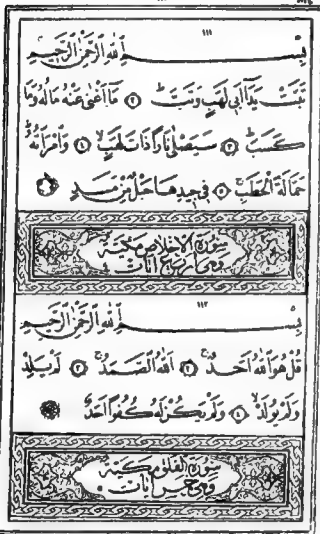 ١١١
بِسْمِ اللهِ الرَّحْمٰنِ الرَّحِيمِ
تَبَّتْ يَدَآ اَبِى لَهَبٍ وَتَبَّ ۞ مَآ اَغْنٰى عَنْهُ مَالُهُ وَمَا
كَسَبَ ۞ سَيَصْلٰى نَارًا ذَاتَ لَهَبٍ ۞ وَامْرَاَتُهُ
حَمَّالَةَ الْحَطَبِ ۞ فِى جِيدِهَا حَبْلٌ مِنْ مَسَدٍ
سُورَةُ الْاِخْلَاصِ مَكِّيَّةٌ
وَهِىَ اَرْبَعُ اٰيَاتٍ
١١٢
بِسْمِ اللهِ الرَّحْمٰنِ الرَّحِيمِ
قُلْ هُوَ اللهُ اَحَدٌ ۞ اَللهُ الصَّمَدُ ۞ لَمْ يَلِدْ
وَلَمْ يُولَدْ ۞ وَلَمْ يَكُنْ لَهُ كُفُوًا اَحَدٌ
سُورَةُ الْفَلَقِ مَكِّيَّةٌ
وَهِىَ خَمْسُ اٰيَاتٍ